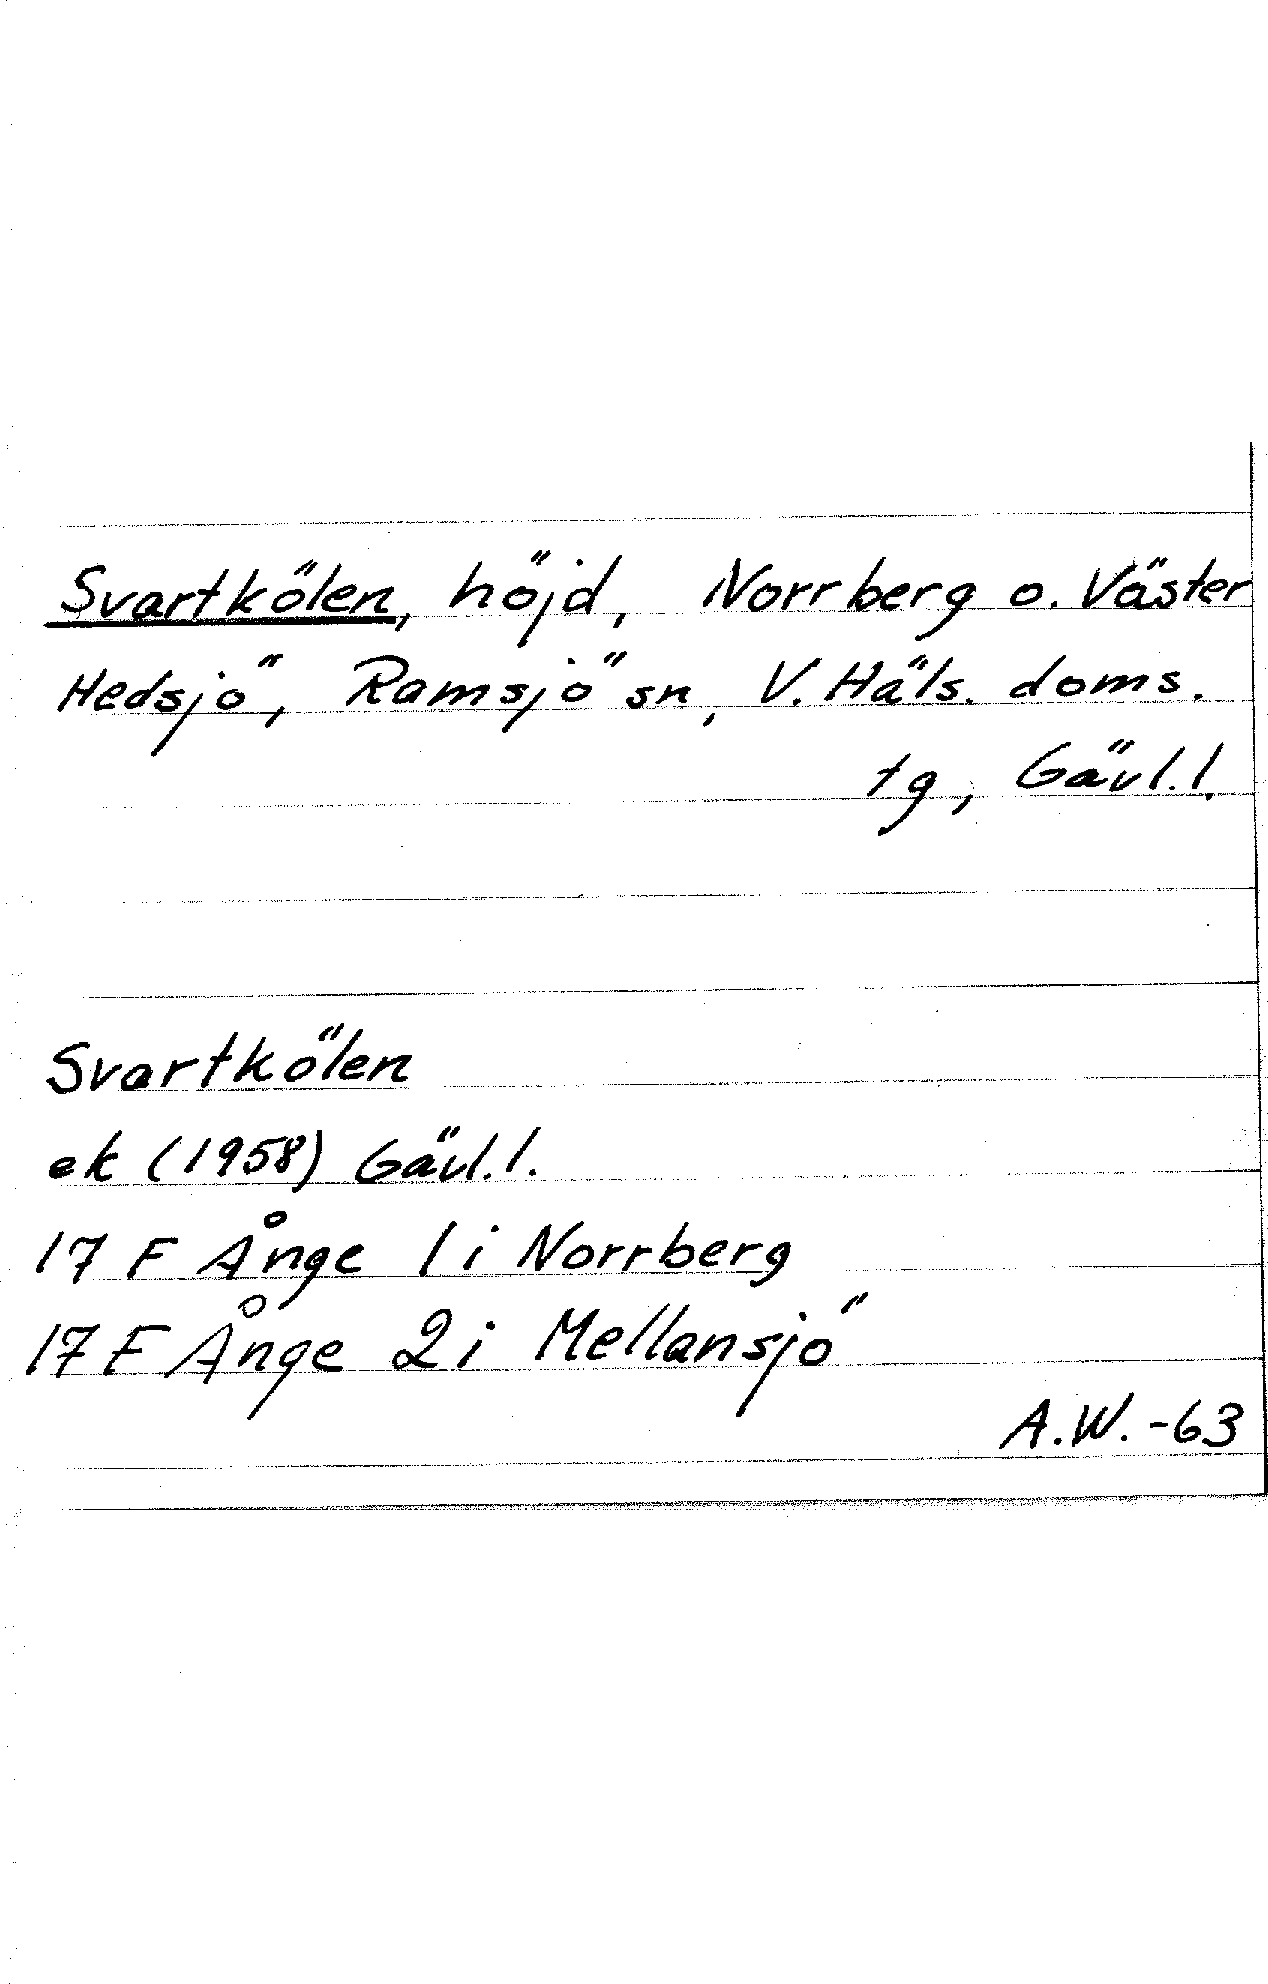 Svartkölen, höjd, Norrberg o. Väster
Hedsjö, Ramsjö sn, V. Häls. doms.
tg, Gävl.l.
Svartkölen
ek (1958) Gävl.l.
17 F Ånge 1 i Norrberg
17 F Ånge 2 i Mellansjö
A.W. -63